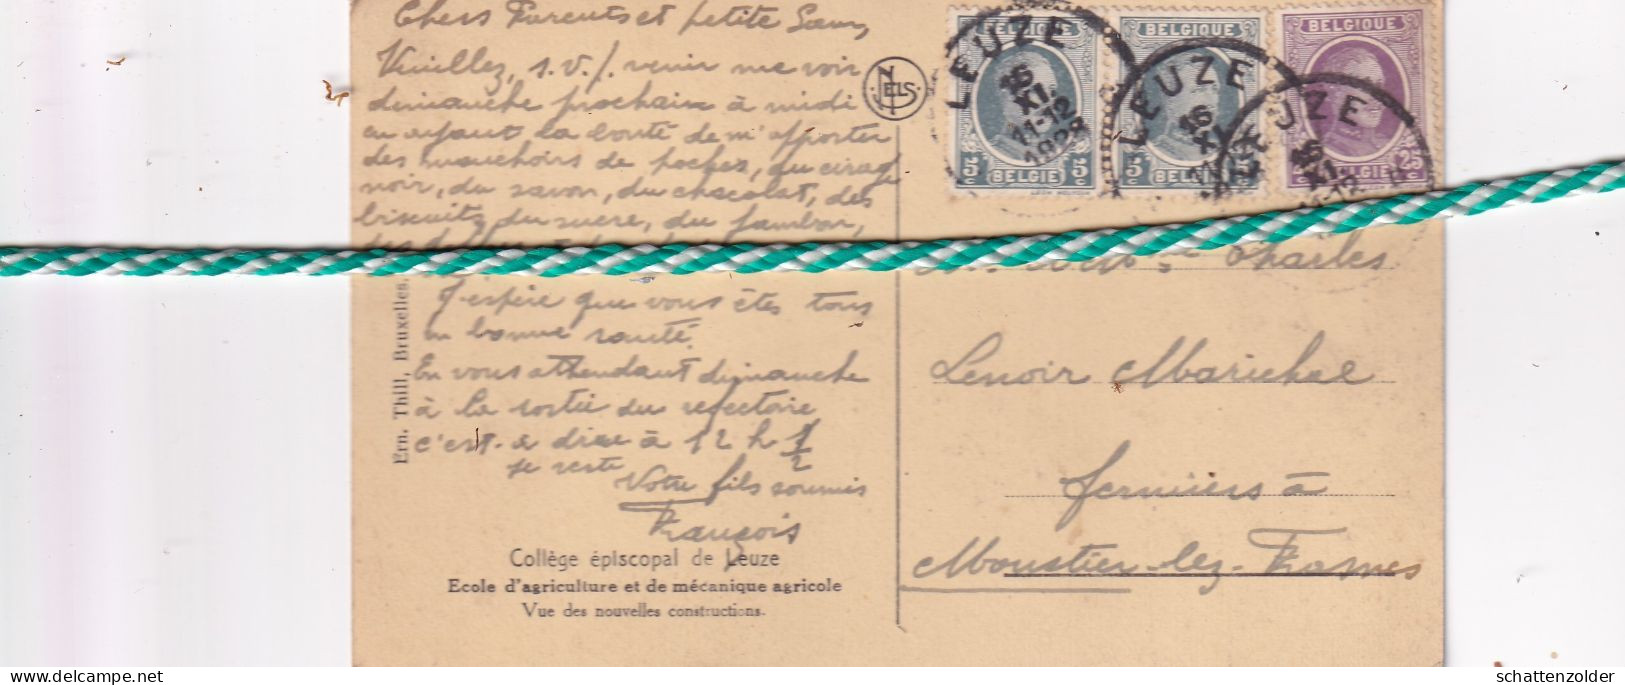 Chers Parents et petite Sœur,
Veuillez, s.v.p. venir me voir
dimanche prochain à midi
en ayant la bonté de m'apporter
des mouchoirs de poches, du cirage
noir, du savon, du chocolat, des
biscuits, du sucre, du jambon,
J'espère que vous êtes tous
en bonne santé.
En vous atthendant dimanche
à la sortie du refectoire
c'est-a dire à 12 h 1/2
je reste
Votre fils soumis
François
Collège épiscopal de Leuze
Ecole d'agriculture et de mécanique agricole
Vue des nouvelles constructions.
Ern. Thill, Bruxelles.
NELS
BELGIQUE
5c 5c
BELGIE
BELGIQUE
5c
BELGIE
BELGIQUE
25c
BELGIE
LEUZE
16
XI
11-12
1928
LEUZE
16
XI
11
LEUZE
16
XI
12
Charles
Lenoir Marichal
fermiers à
Moustier-lez-Frasnes
schattenzolder